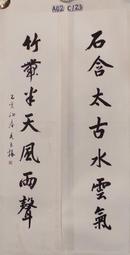 A02 C123
石含太古水雲氣
竹帶半天風雨聲